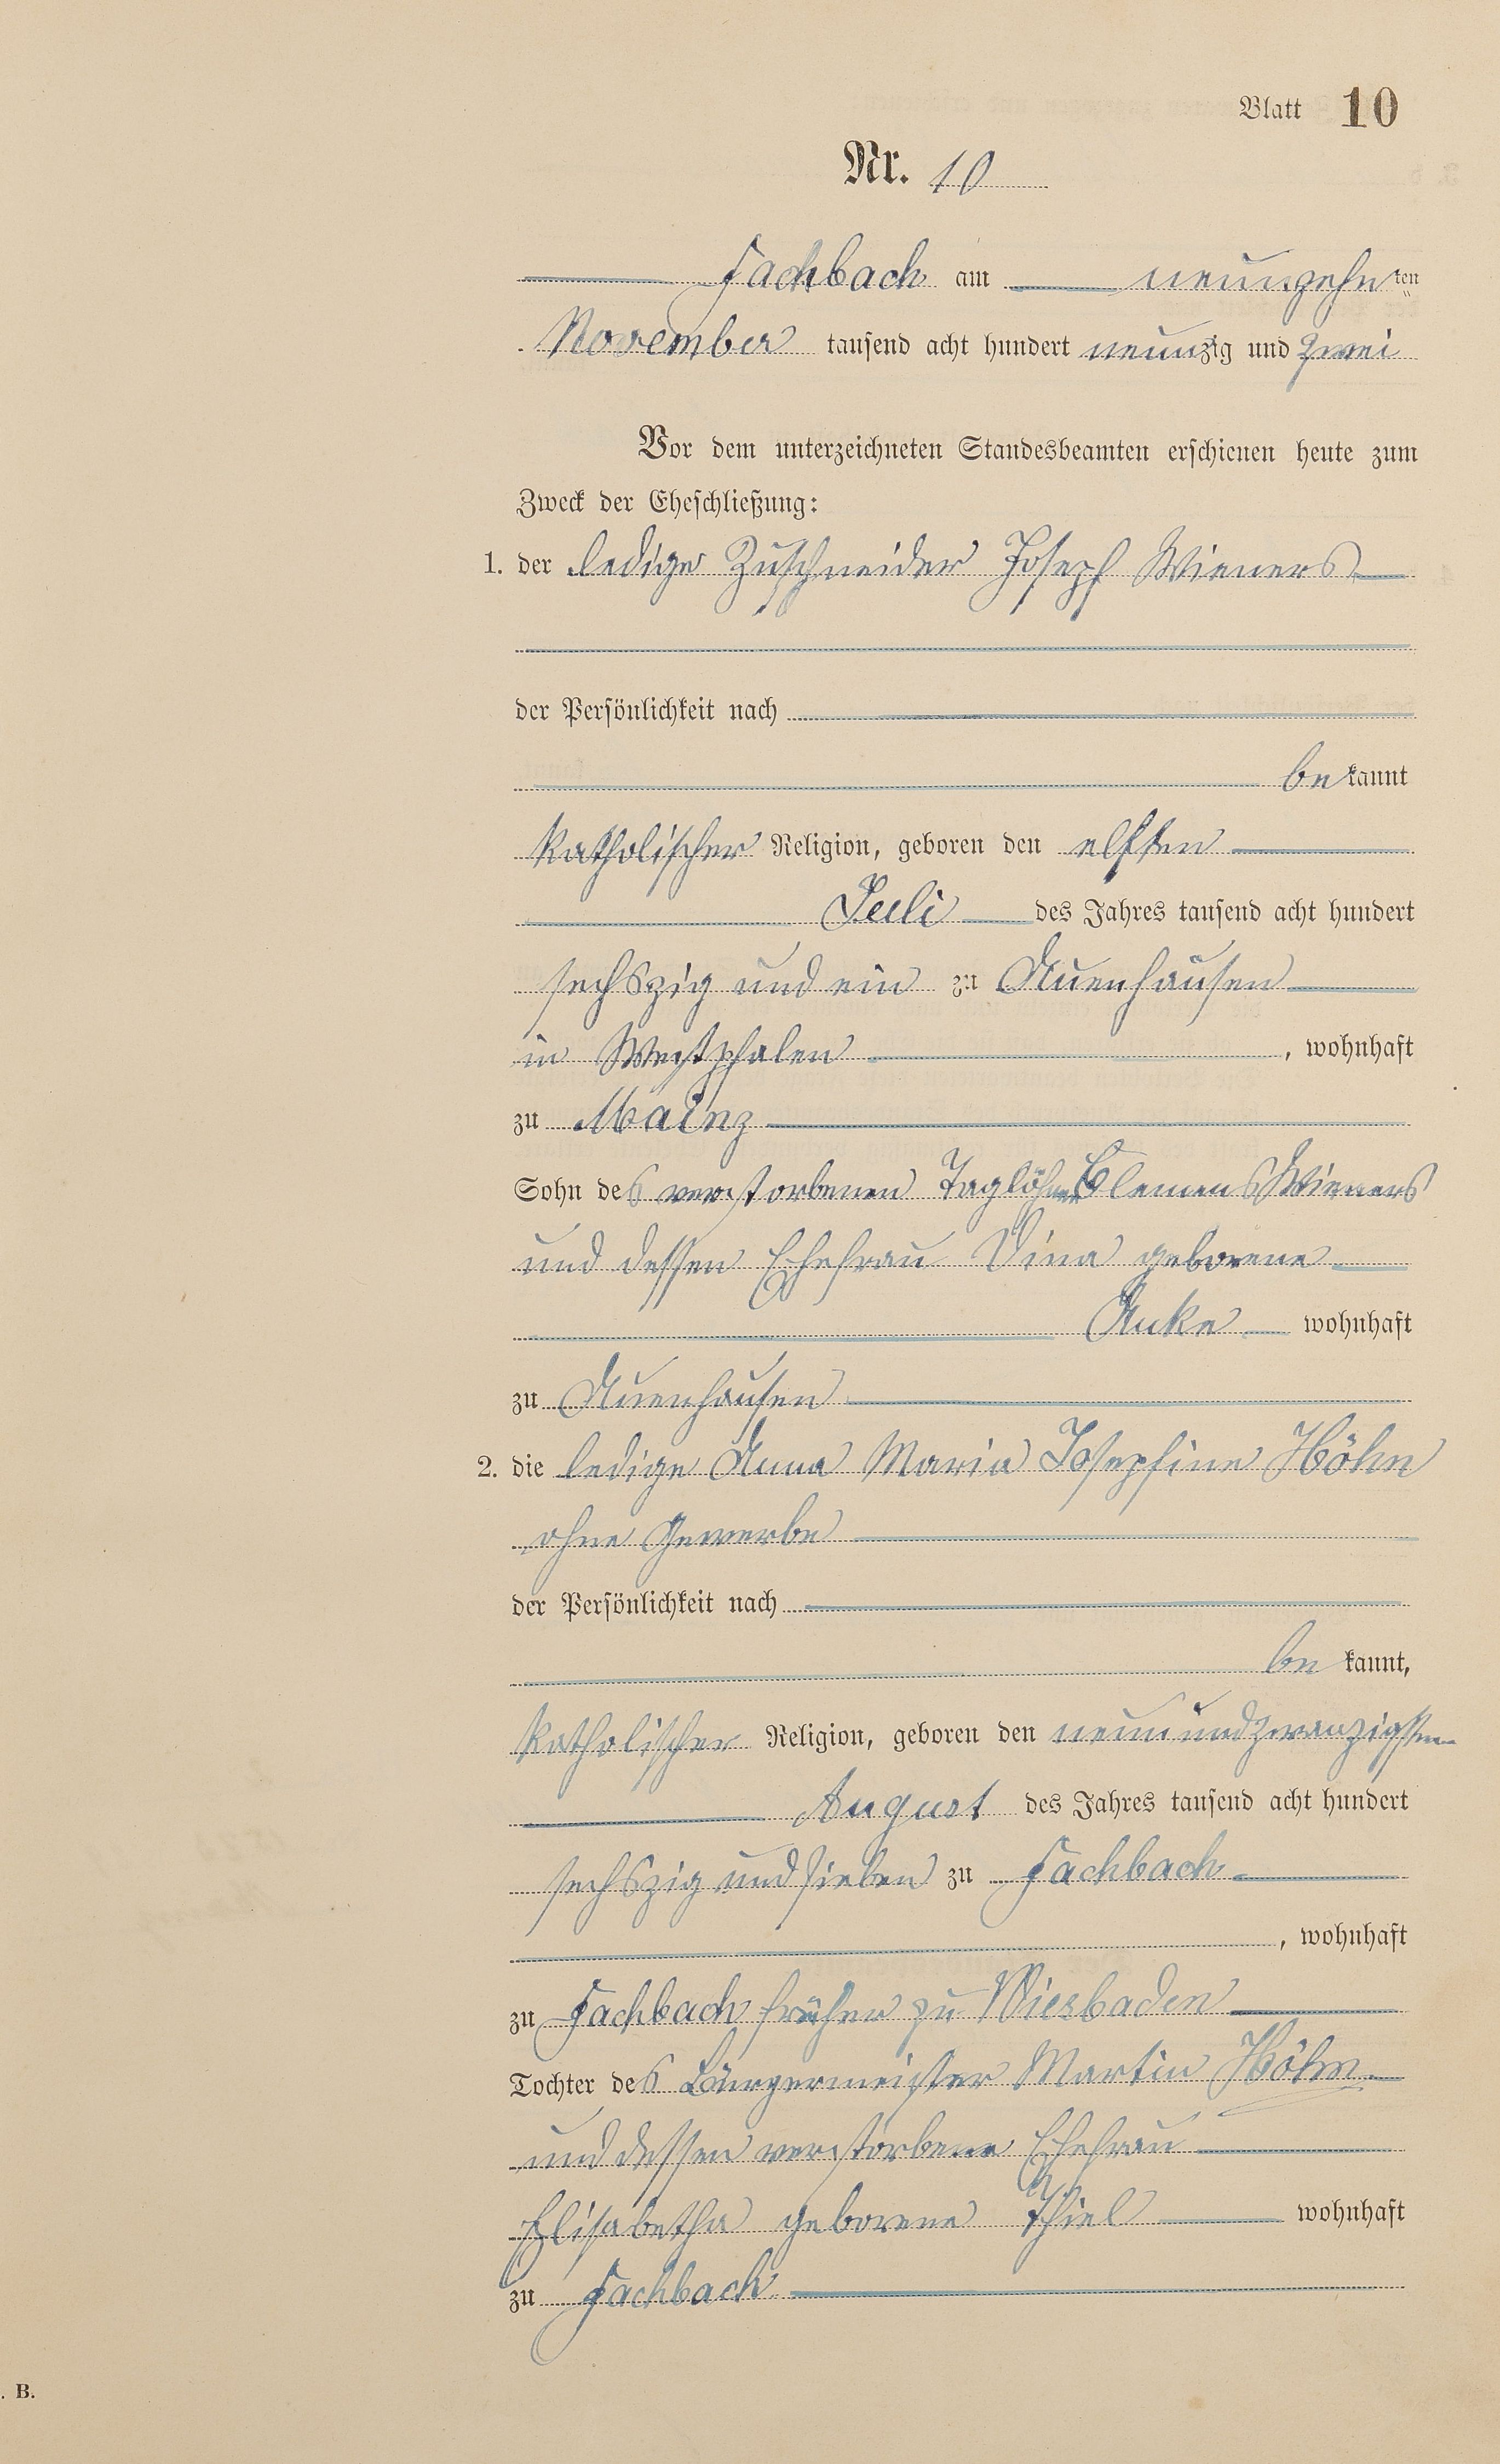 Blatt 10
Nr. 10
Fachbach am neunzehnten
November tausend acht hundert neunzig und zwei
Vor dem unterzeichneten Standesbeamten erschienen heute zum
Zweck der Eheschließung:
1. der ledige Zuschneider Joseph Wieners
der Persönlichkeit nach
bekannt
katholischer Religion, geboren den elften
Juli des Jahres tausend acht hundert
sechszig und ein zu Auenhausen
in Westphalen, wohnhaft
zu Mainz
Sohn des verstorbenen Taglöhner Clemens Wieners
und dessen Ehefrau Dina geborene
Auke wohnhaft
zu Auenhausen
2. die ledige Anna Maria Josephine Höhn
ohne Gewerbe
der Persönlichkeit nach
bekannt,
katholischer Religion, geboren den neunundzwanzigsten
August des Jahres tausend acht hundert
sechszig und sieben zu Fachbach
, wohnhaft
zu Fachbach früher zu Wiesbaden
Tochter des Bürgermeister Martin Höhn
und dessen verstorbene Ehefrau
Elisabetha geborene Thiel wohnhaft
zu Fachbach
. B.